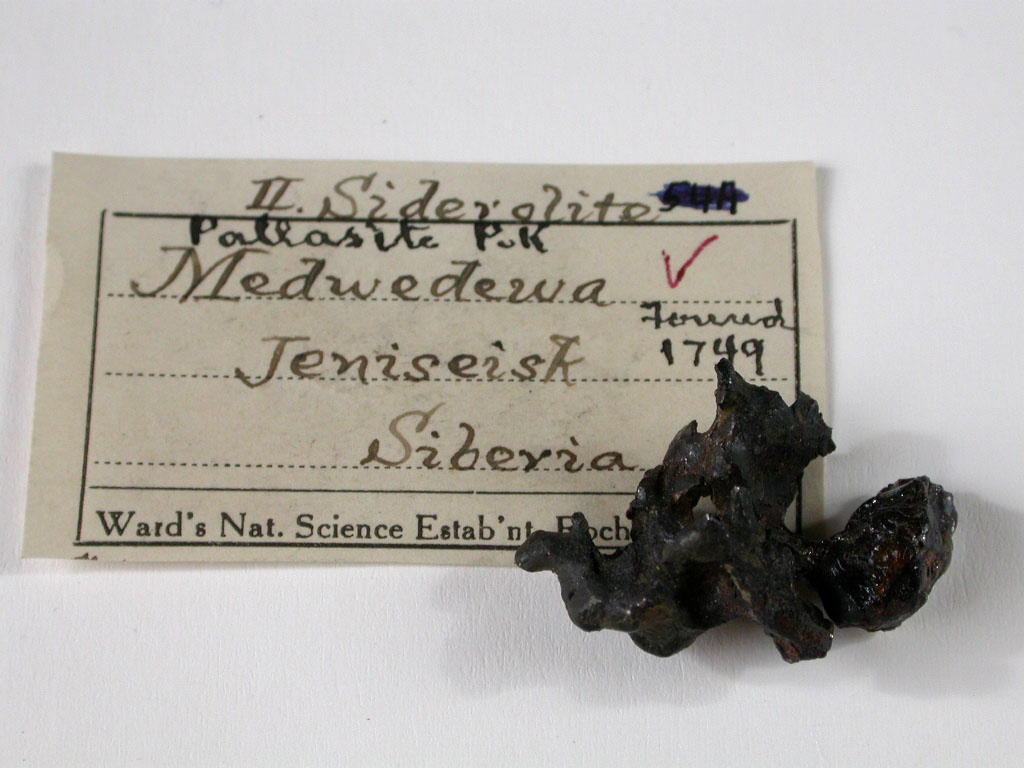 II. Siderolite 54A
Pallasite P.K
Medwedewa
Found
Jeniseisk 1749
Siberia
Ward's Nat. Science Estab'nt. Roch